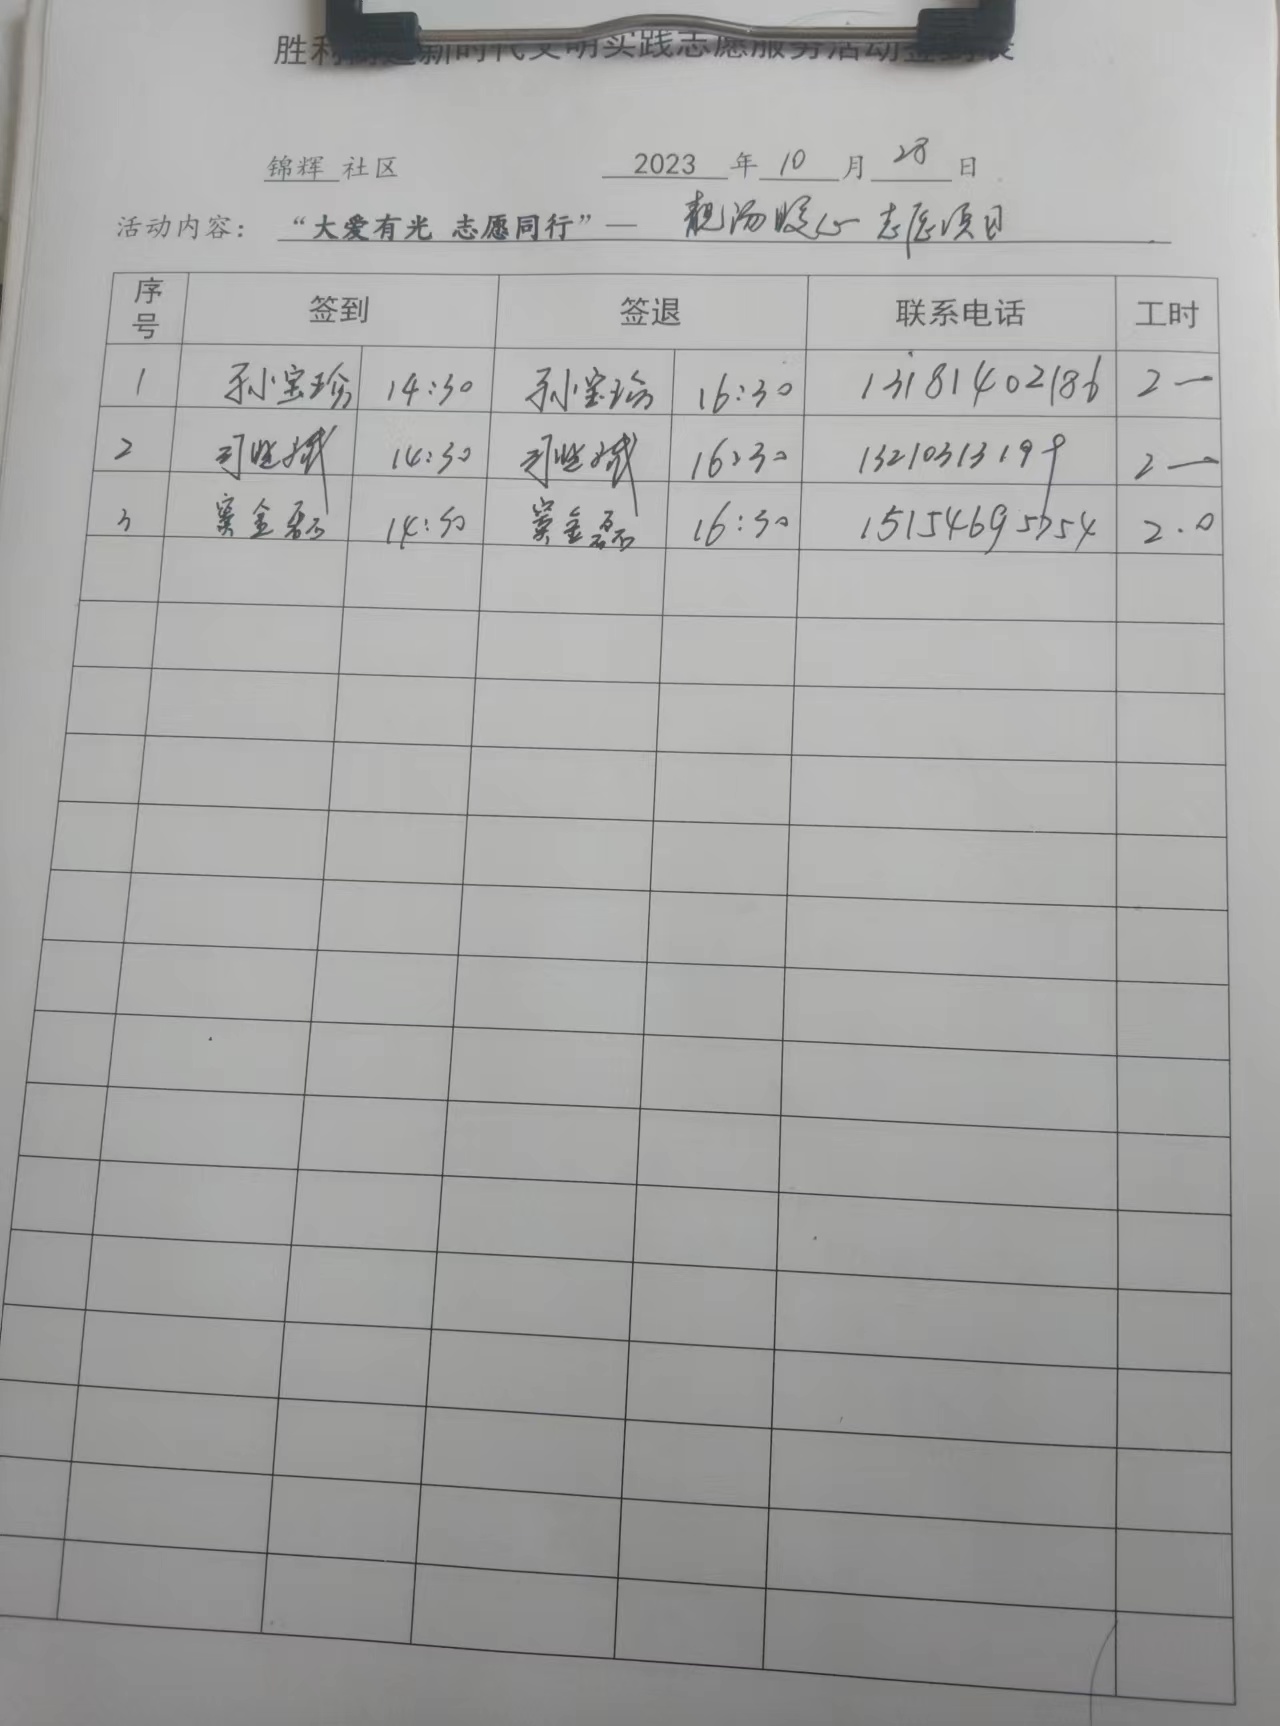 胜利街道新时代文明实践志愿服务活动签到表
锦辉 社区 2023 年 10 月 28 日
活动内容： “大爱有光 志愿同行”— 靓汤暖心 志愿项目
序号 签到 签退 联系电话 工时
1 孙宝珍 14:30 孙宝珍 16:30 13181402186 2 一
2 司胜斌 14:30 司胜斌 16:30 1321031319 2 一
3 窦金磊 14:30 窦金磊 16:30 15154695754 2.0